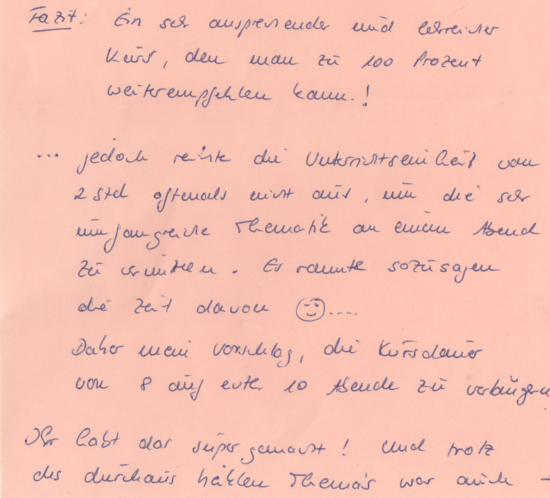 Fazit: Ein sehr ansprechender und lehrreicher
Kurs, den man zu 100 Prozent
weiterempfehlen kann.!
... jedoch reichte die Unterrichtseinheit von
2 Std oftmals nicht aus, um die sehr
umfangreiche Thematik an einem Abend
zu vermitteln. Es rannte sozusagen
die Zeit davon ☺....
Daher mein Vorschlag, die Kursdauer
von 8 auf evtl. 10 Abende zu verlängern
Ihr habt das super gemacht! Und trotz
des durchaus heiklen Thema's war auch –